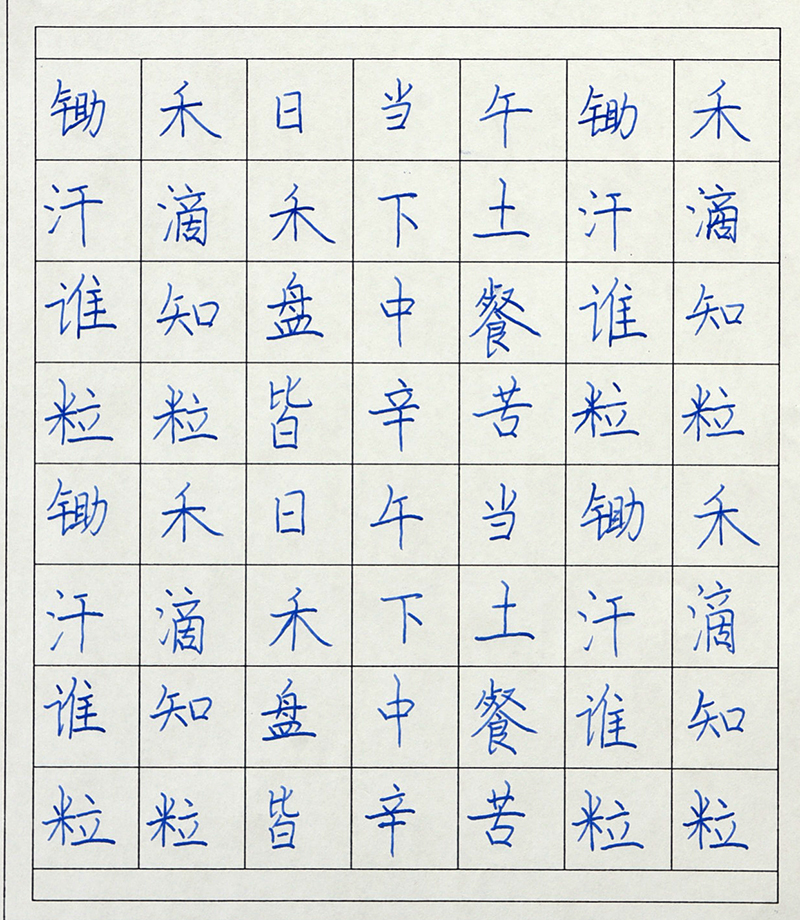 锄禾日当午锄禾
汗滴禾下土汗滴
谁知盘中餐谁知
粒粒皆辛苦粒粒
锄禾日午当锄禾
汗滴禾下土汗滴
谁知盘中餐谁知
粒粒皆辛苦粒粒